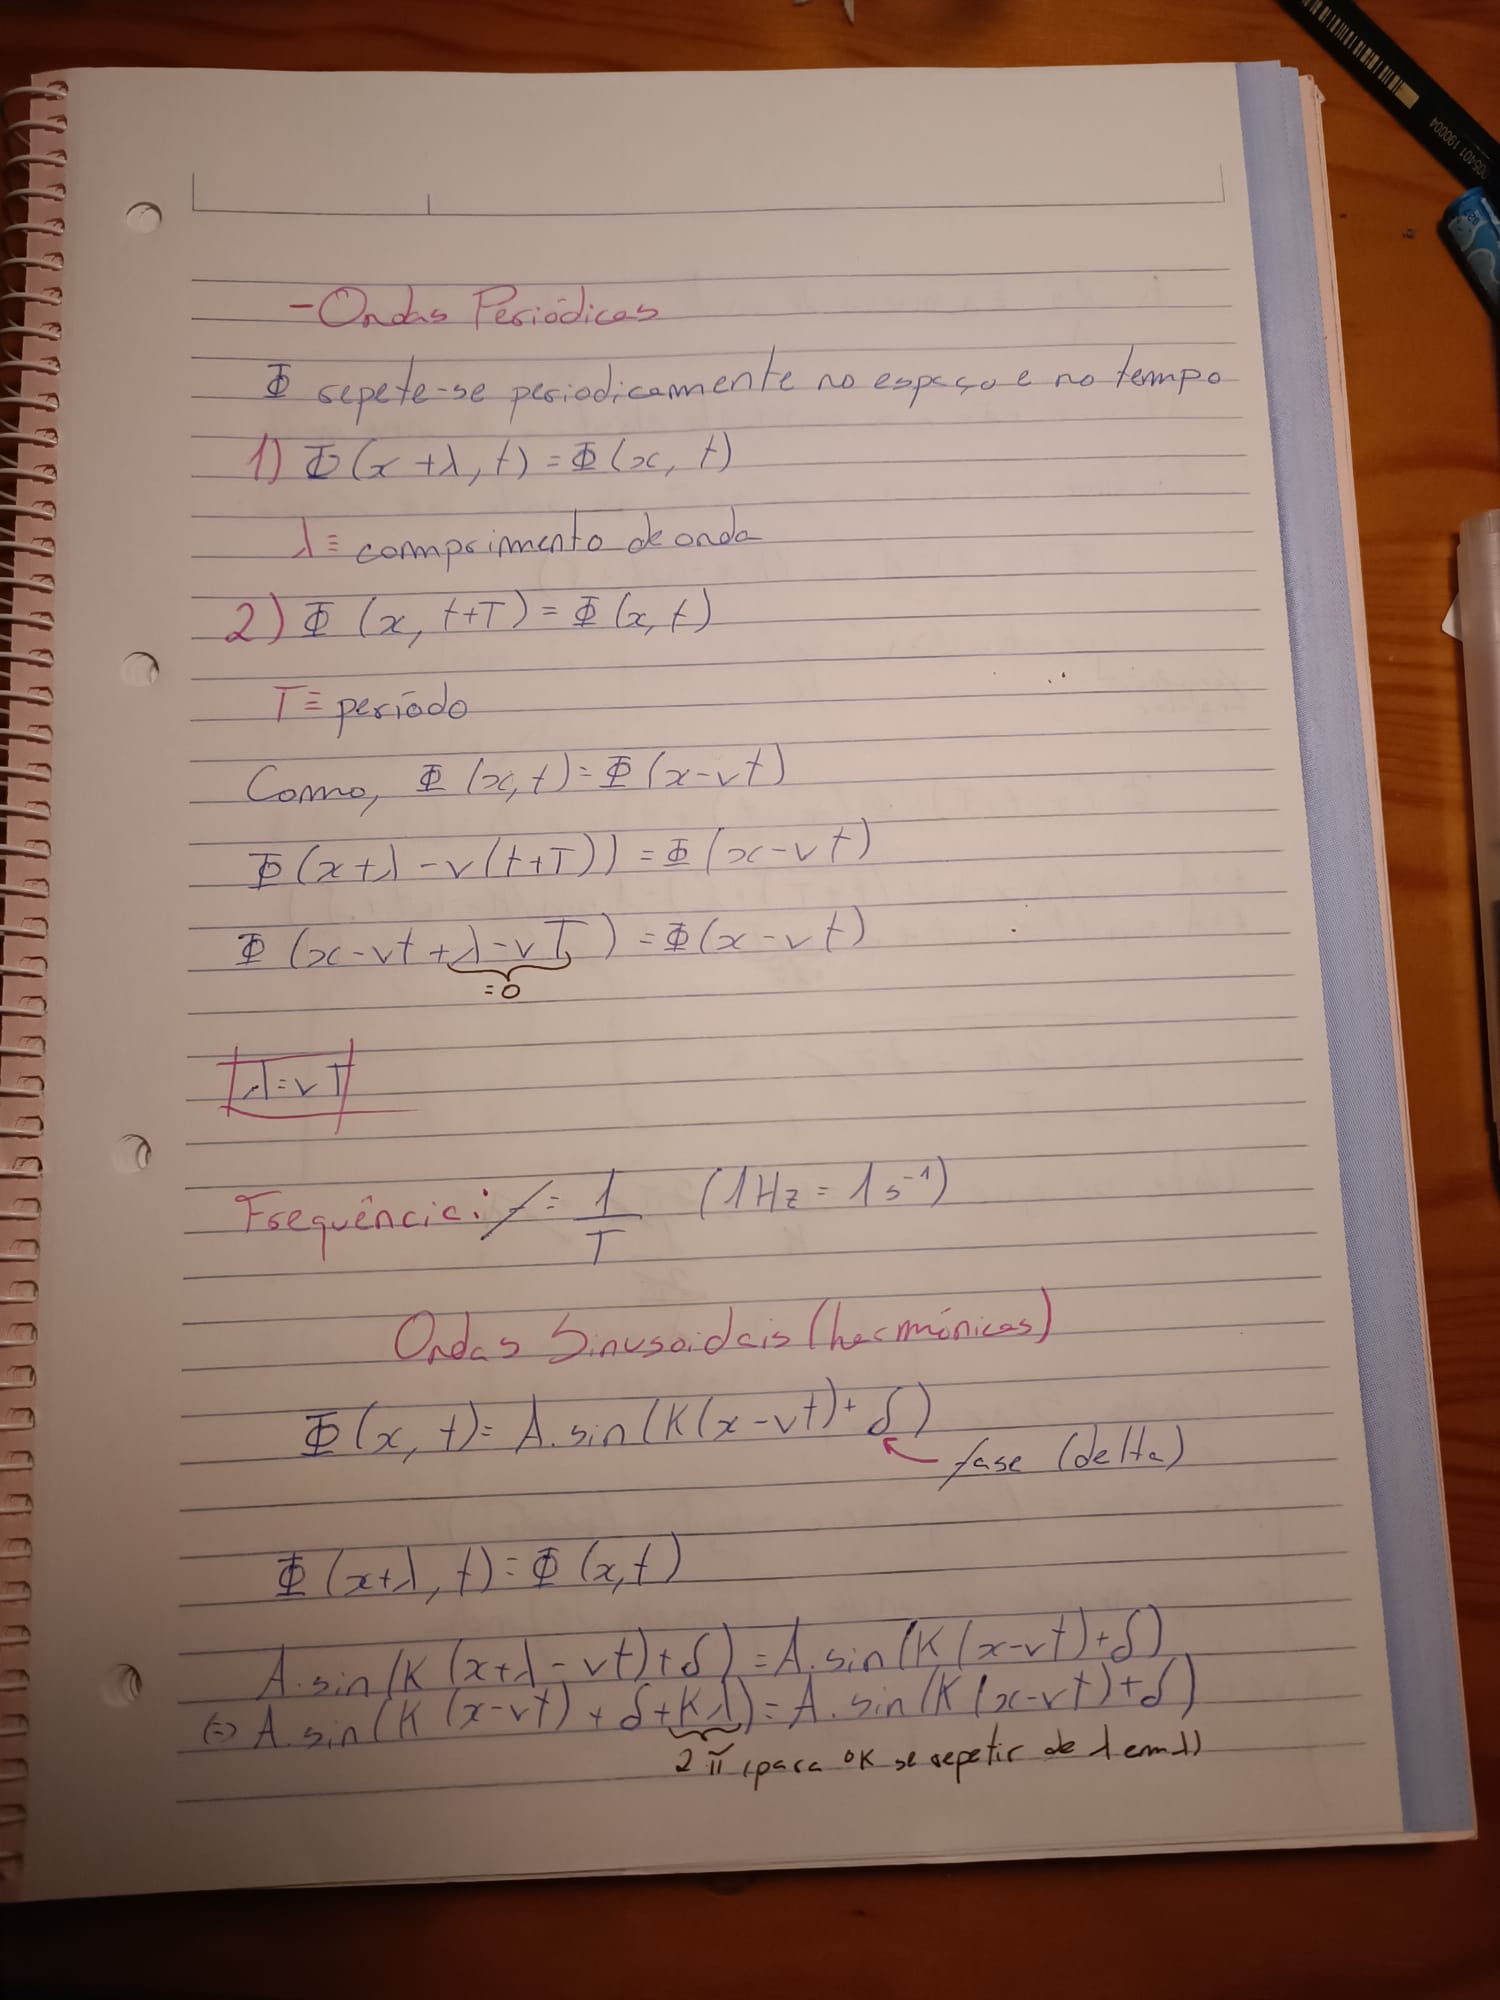 - Ondas Periódicas
Φ repete-se periodicamente no espaço e no tempo
1) Φ(x+λ, t) = Φ(x, t)
λ ≡ comprimento de onda
2) Φ(x, t+T) = Φ(x, t)
T ≡ período
Como, Φ(x, t) = Φ(x-vt)
Φ(x+λ-v(t+T)) = Φ(x-vt)
Φ(x-vt+λ-vT) = Φ(x-vt)
=0
λ=vT
Frequência: f = 1/T (1Hz = 1s⁻¹)
Ondas Sinusoidais (harmónicas)
Φ(x, t) = A.sin(K(x-vt)+δ)
fase (delta)
Φ(x+λ, t) = Φ(x, t)
A.sin(K(x+λ-vt)+δ) = A.sin(K(x-vt)+δ)
(=) A.sin(K(x-vt)+δ+Kλ) = A.sin(K(x-vt)+δ)
2π (para se repetir de λ em λ)
005401 190004